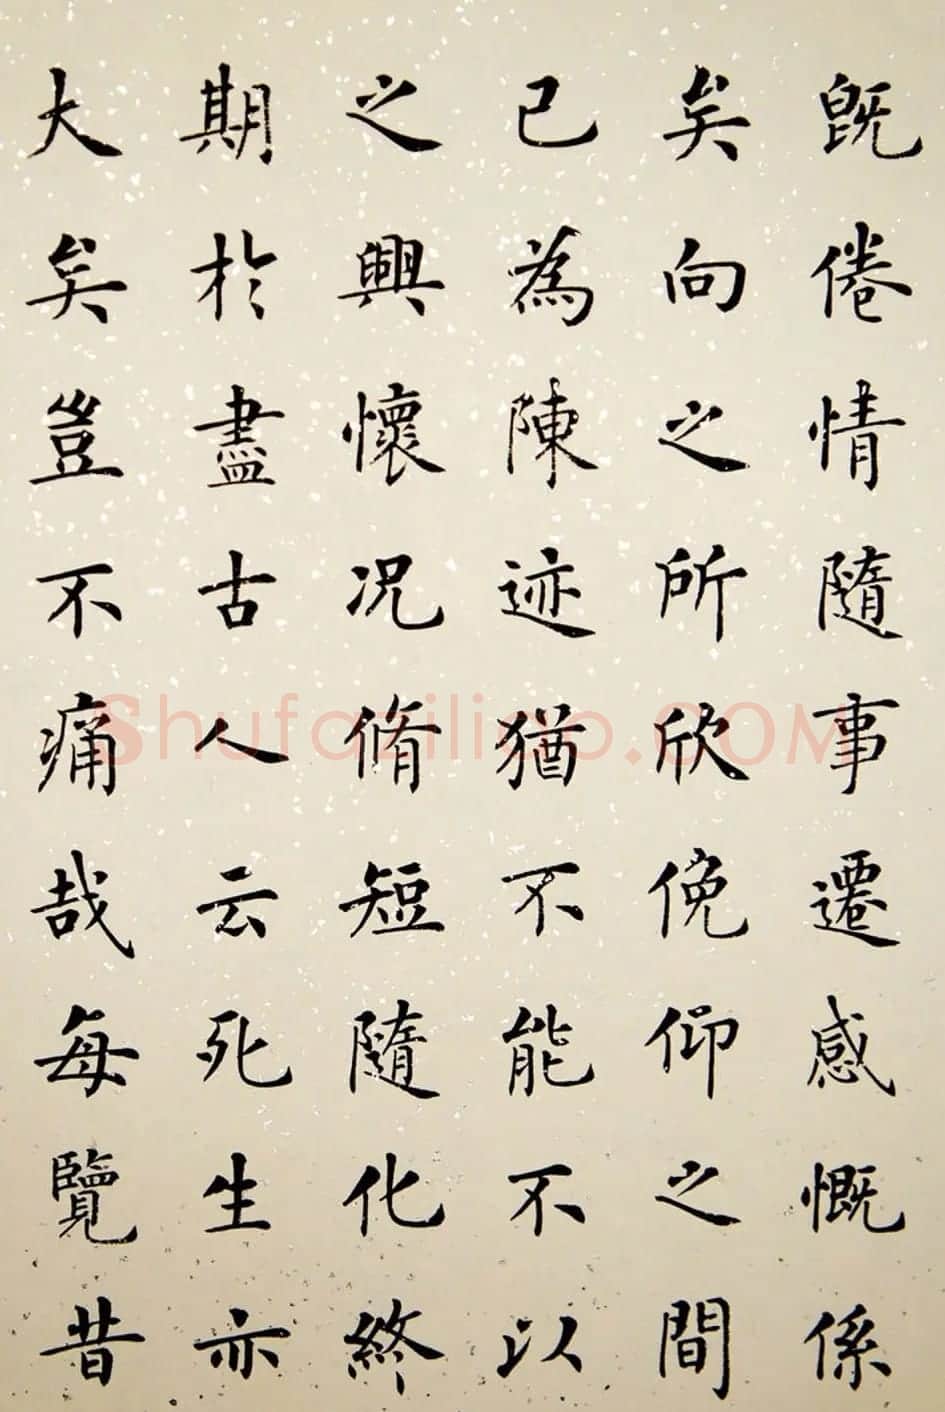 既倦情隨事遷感慨係
矣向之所欣俛仰之間
已為陳迹猶不能不以
之興懷况脩短隨化終
期於盡古人云死生亦
大矣豈不痛哉每覽昔
Shufaziliao.COM